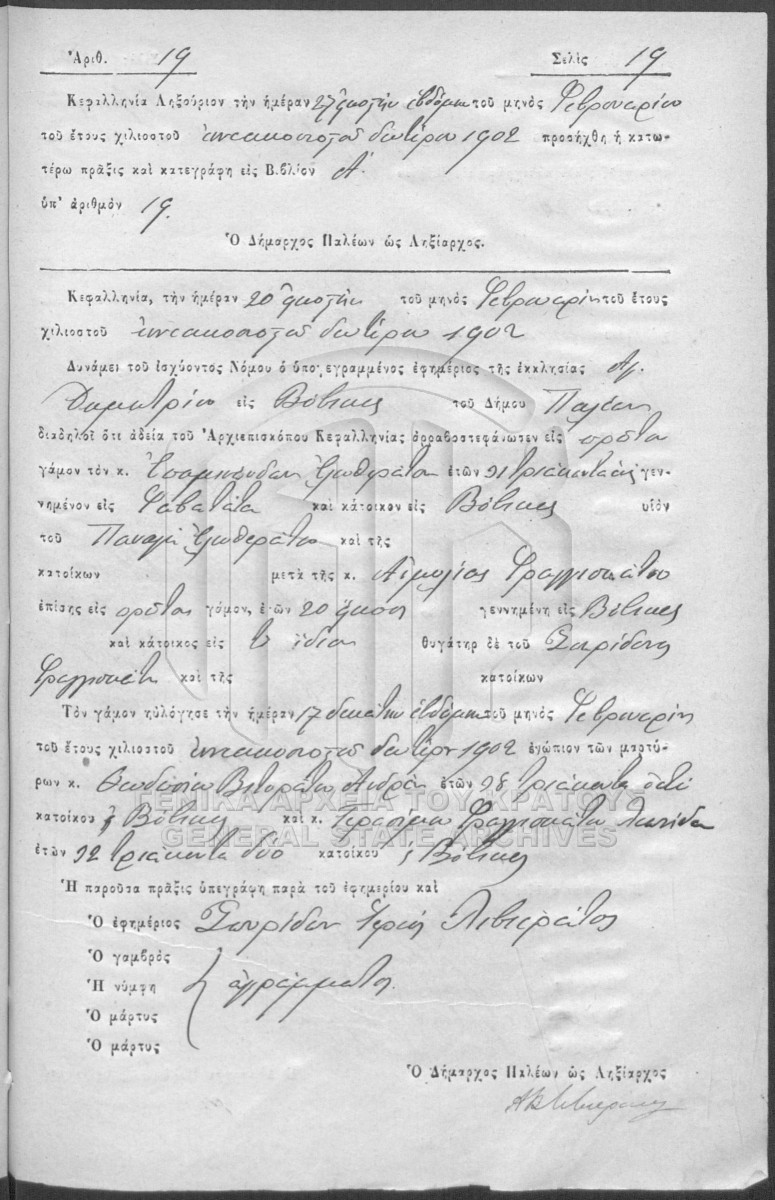 Ἀριθ. 19 Σελὶς 19
Κεφαλληνία Ληξούριον τὴν ἡμέραν 27 εἰκοστὴν ἑβδόμην τοῦ μηνὸς Φεβρουαρίου
τοῦ ἔτους χιλιοστοῦ ἐννεακοσιοστοῦ δευτέρου 1902 προσήχθη ἡ κατω-
τέρω πρᾶξις καὶ κατεγράφη εἰς Βιβλίον Α΄.
ὑπ' ἀριθμὸν 19.
Ὁ Δήμαρχος Παλέων ὡς Ληξίαρχος.
Κεφαλληνία, τὴν ἡμέραν 20 εἰκοστὴν τοῦ μηνὸς Φεβρουαρίου τοῦ ἔτους
χιλιοστοῦ ἐννεακοσιοστοῦ δευτέρου 1902
Δυνάμει τοῦ ἰσχύοντος Νόμου ὁ ὑπογεγραμμένος ἐφημέριος τῆς ἐκκλησίας Ἁγ.
Δημητρίου εἰς Βόβικες τοῦ Δήμου Παλέων
διαδηλοῖ ὅτι ἀδεία τοῦ Ἀρχιεπισκόπου Κεφαλληνίας ἀρραβοστεφάνωσεν εἰς πρῶτον
γάμον τὸν κ. Ἐπαμινώνδαν Ἐλευθεράτον ἐτῶν 31 τριάκοντα ἑνὸς γεν-
νημένον εἰς Φαβατάτα καὶ κάτοικον εἰς Βόβικες υἱὸν
τοῦ Παναγῆ Ἐλευθεράτου καὶ τῆς
κατοίκων μετὰ τῆς κ. Αἰμιλίας Φραγγισκάτου
ἐπίσης εἰς πρῶτον γάμον, ἐτῶν 20 εἴκοσι γεννημένη εἰς Βόβικες
καὶ κάτοικος εἰς τὸ ἴδιον θυγάτηρ δὲ τοῦ Σπυρίδωνος
Φραγγισκάτου καὶ τῆς κατοίκων
Τὸν γάμον ηὐλόγησε τὴν ἡμέραν 17 δεκάτην ἑβδόμην τοῦ μηνὸς Φεβρουαρίου
τοῦ ἔτους χιλιοστοῦ ἐννεακοσιοστοῦ δευτέρου 1902 ἐνώπιον τῶν μαρτύ-
ρων κ. Θεοδοσίου Βιτοράτου Ἀνδρέα ἐτῶν 38 τριάκοντα ὀκτὼ
κατοίκου Βόβικες καὶ κ. Γερασίμου Φραγγισκάτου Λεωνίδα
ἐτῶν 32 τριάκοντα δύο κατοίκου Βόβικες
Ἡ παροῦσα πρᾶξις ὑπεγράφη παρὰ τοῦ ἐφημερίου καὶ
Ὁ ἐφημέριος Σπυρίδων Ἱερεὺς Λιβιεράτος
Ὁ γαμβρὸς
Ἡ νύμφη ἀγράμματοι.
Ὁ μάρτυς
Ὁ μάρτυς
Ὁ Δήμαρχος Παλέων ὡς Ληξίαρχος
ΓΕΝΙΚΑ ΑΡΧΕΙΑ ΤΟΥ ΚΡΑΤΟΥΣ
GENERAL STATE ARCHIVES